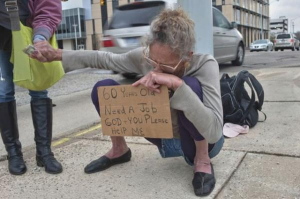 60 Years Old
Need A Job
GOD-You Please
Help ME